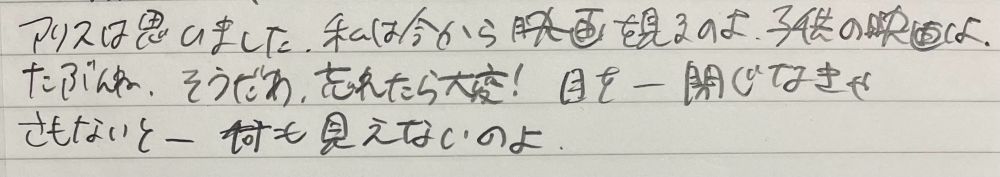 アリスは思いました. 私は今から映画を観るのよ. 子供の映画よ.
たぶんね. そうだわ, 忘れたら大変! 目を一閉じなきゃ
さもないと一何も見えないのよ.